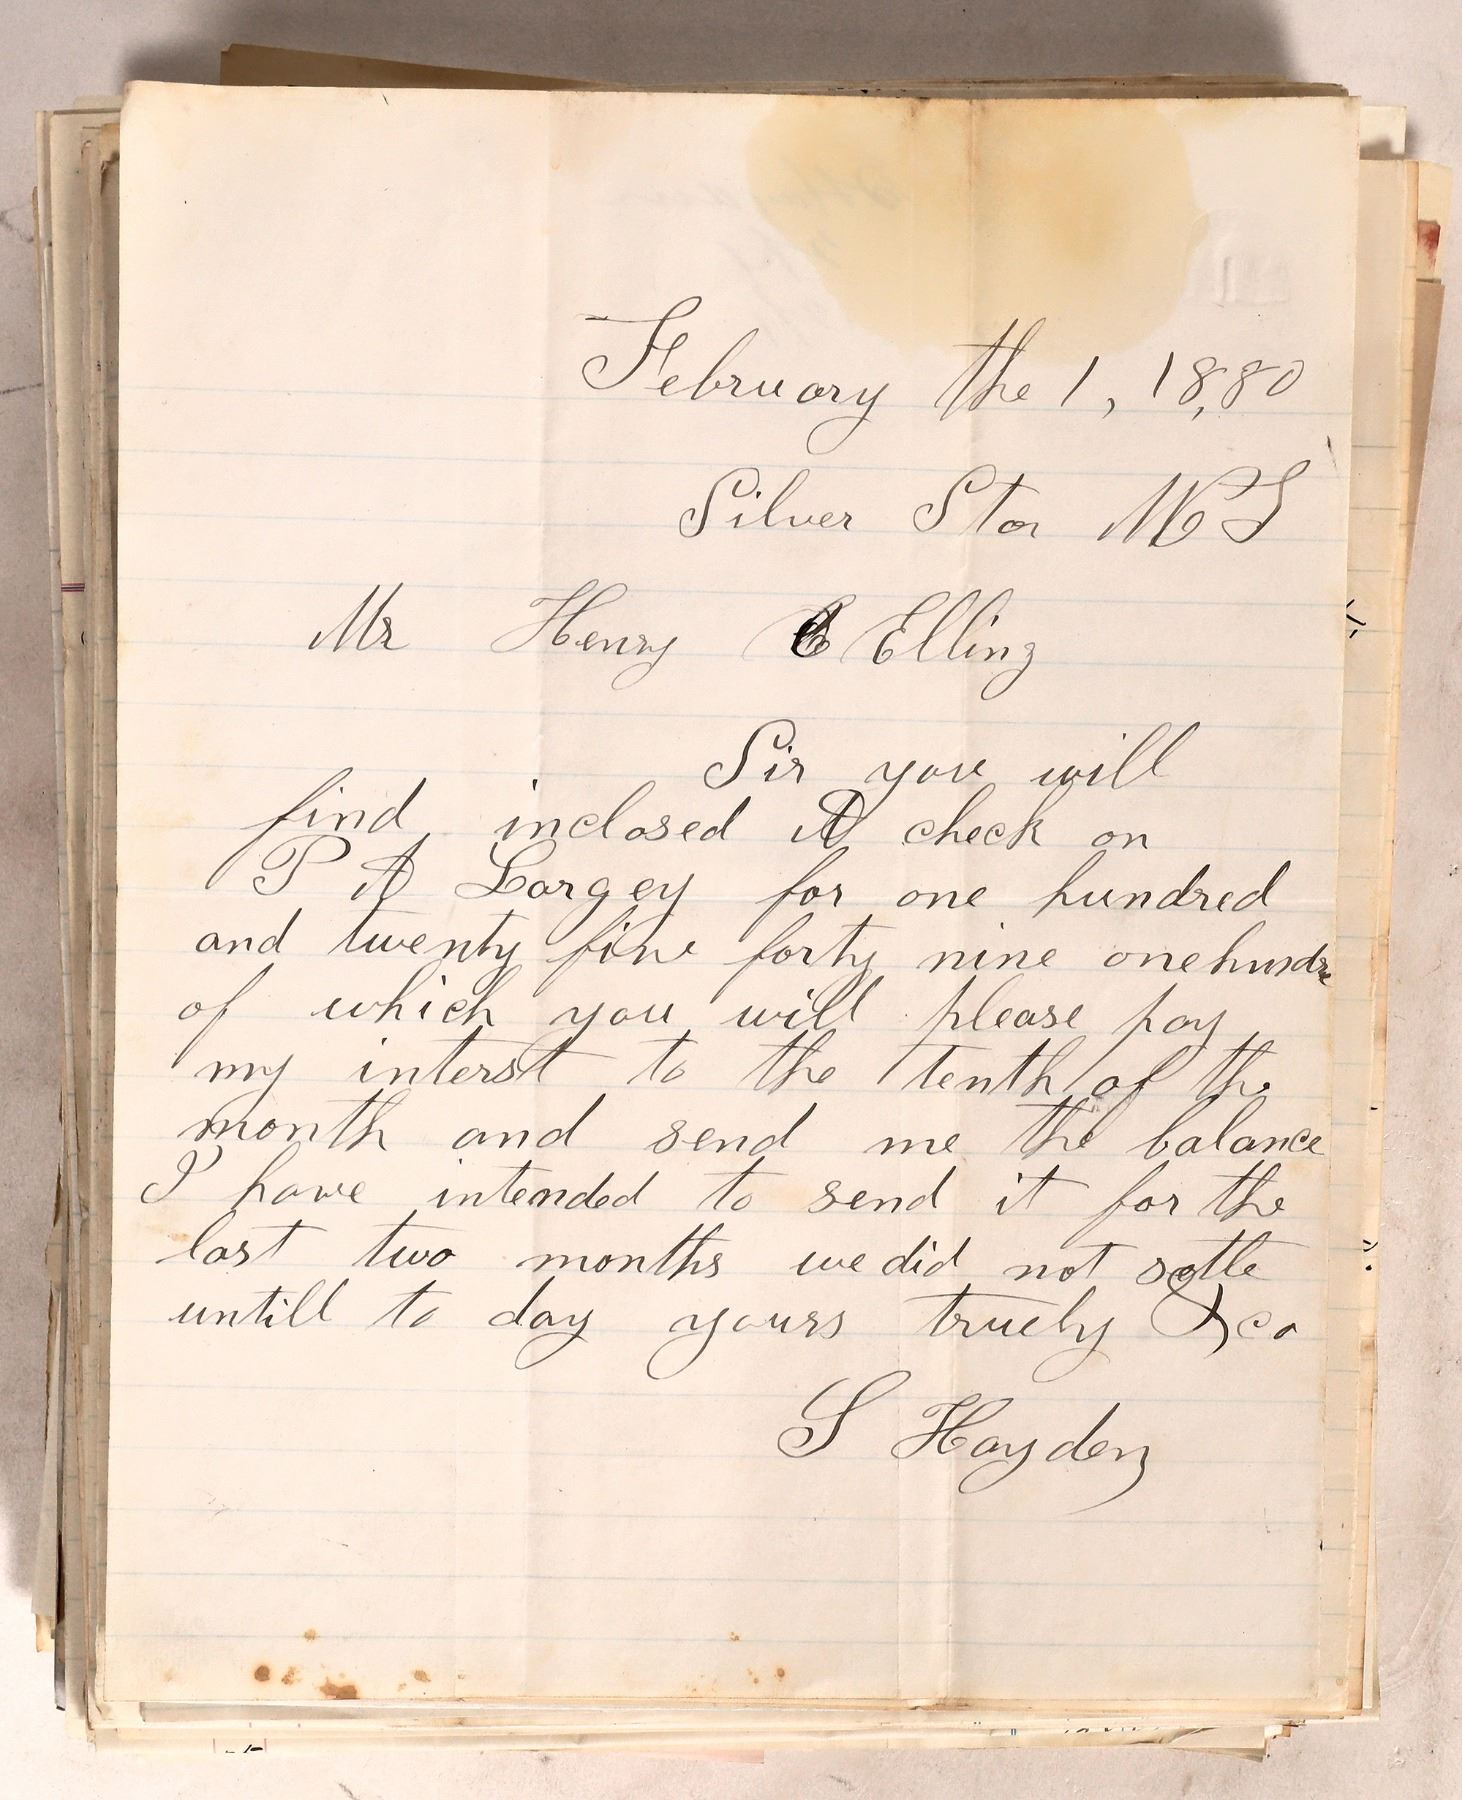 February the 1, 18,80
Silver Star M T
Mr Henry Elling
Sir you will
find inclosed A check on
P A Largey for one hundred
and twenty five forty nine onehundre
of which you will please pay
my interst to the tenth of the
month and send me the balance
I have intended to send it for the
last two months we did not settle
untill to day yours truely &co
S Hayden